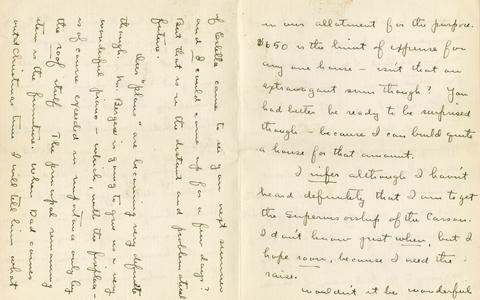 in our allotment for the purpose.
$650 is the limit of expense for
any one house – isn't that an
extravagant sum though? You
had better be ready to be surprised
though – because I can build quite
a house for that amount.
I infer although I haven't
heard definitely that I am to get
the Supervisorship of the Carson.
I don't know just when, but I
hope soon, because I need the
raise.
Wouldn't it be wonderful
if Estella came to see you next summer
and I could come up for a few days?
But that is in the distant and problematical
future.
Our "plans" are becoming very definite
though. Mr. Bergere is going to give us a very
wonderful piano – which, with the fireplace –
is of course exceeded in importance only by
the roof itself. The principal remaining
item is the furniture. When Dad comes
out Christmas time I will tell him what